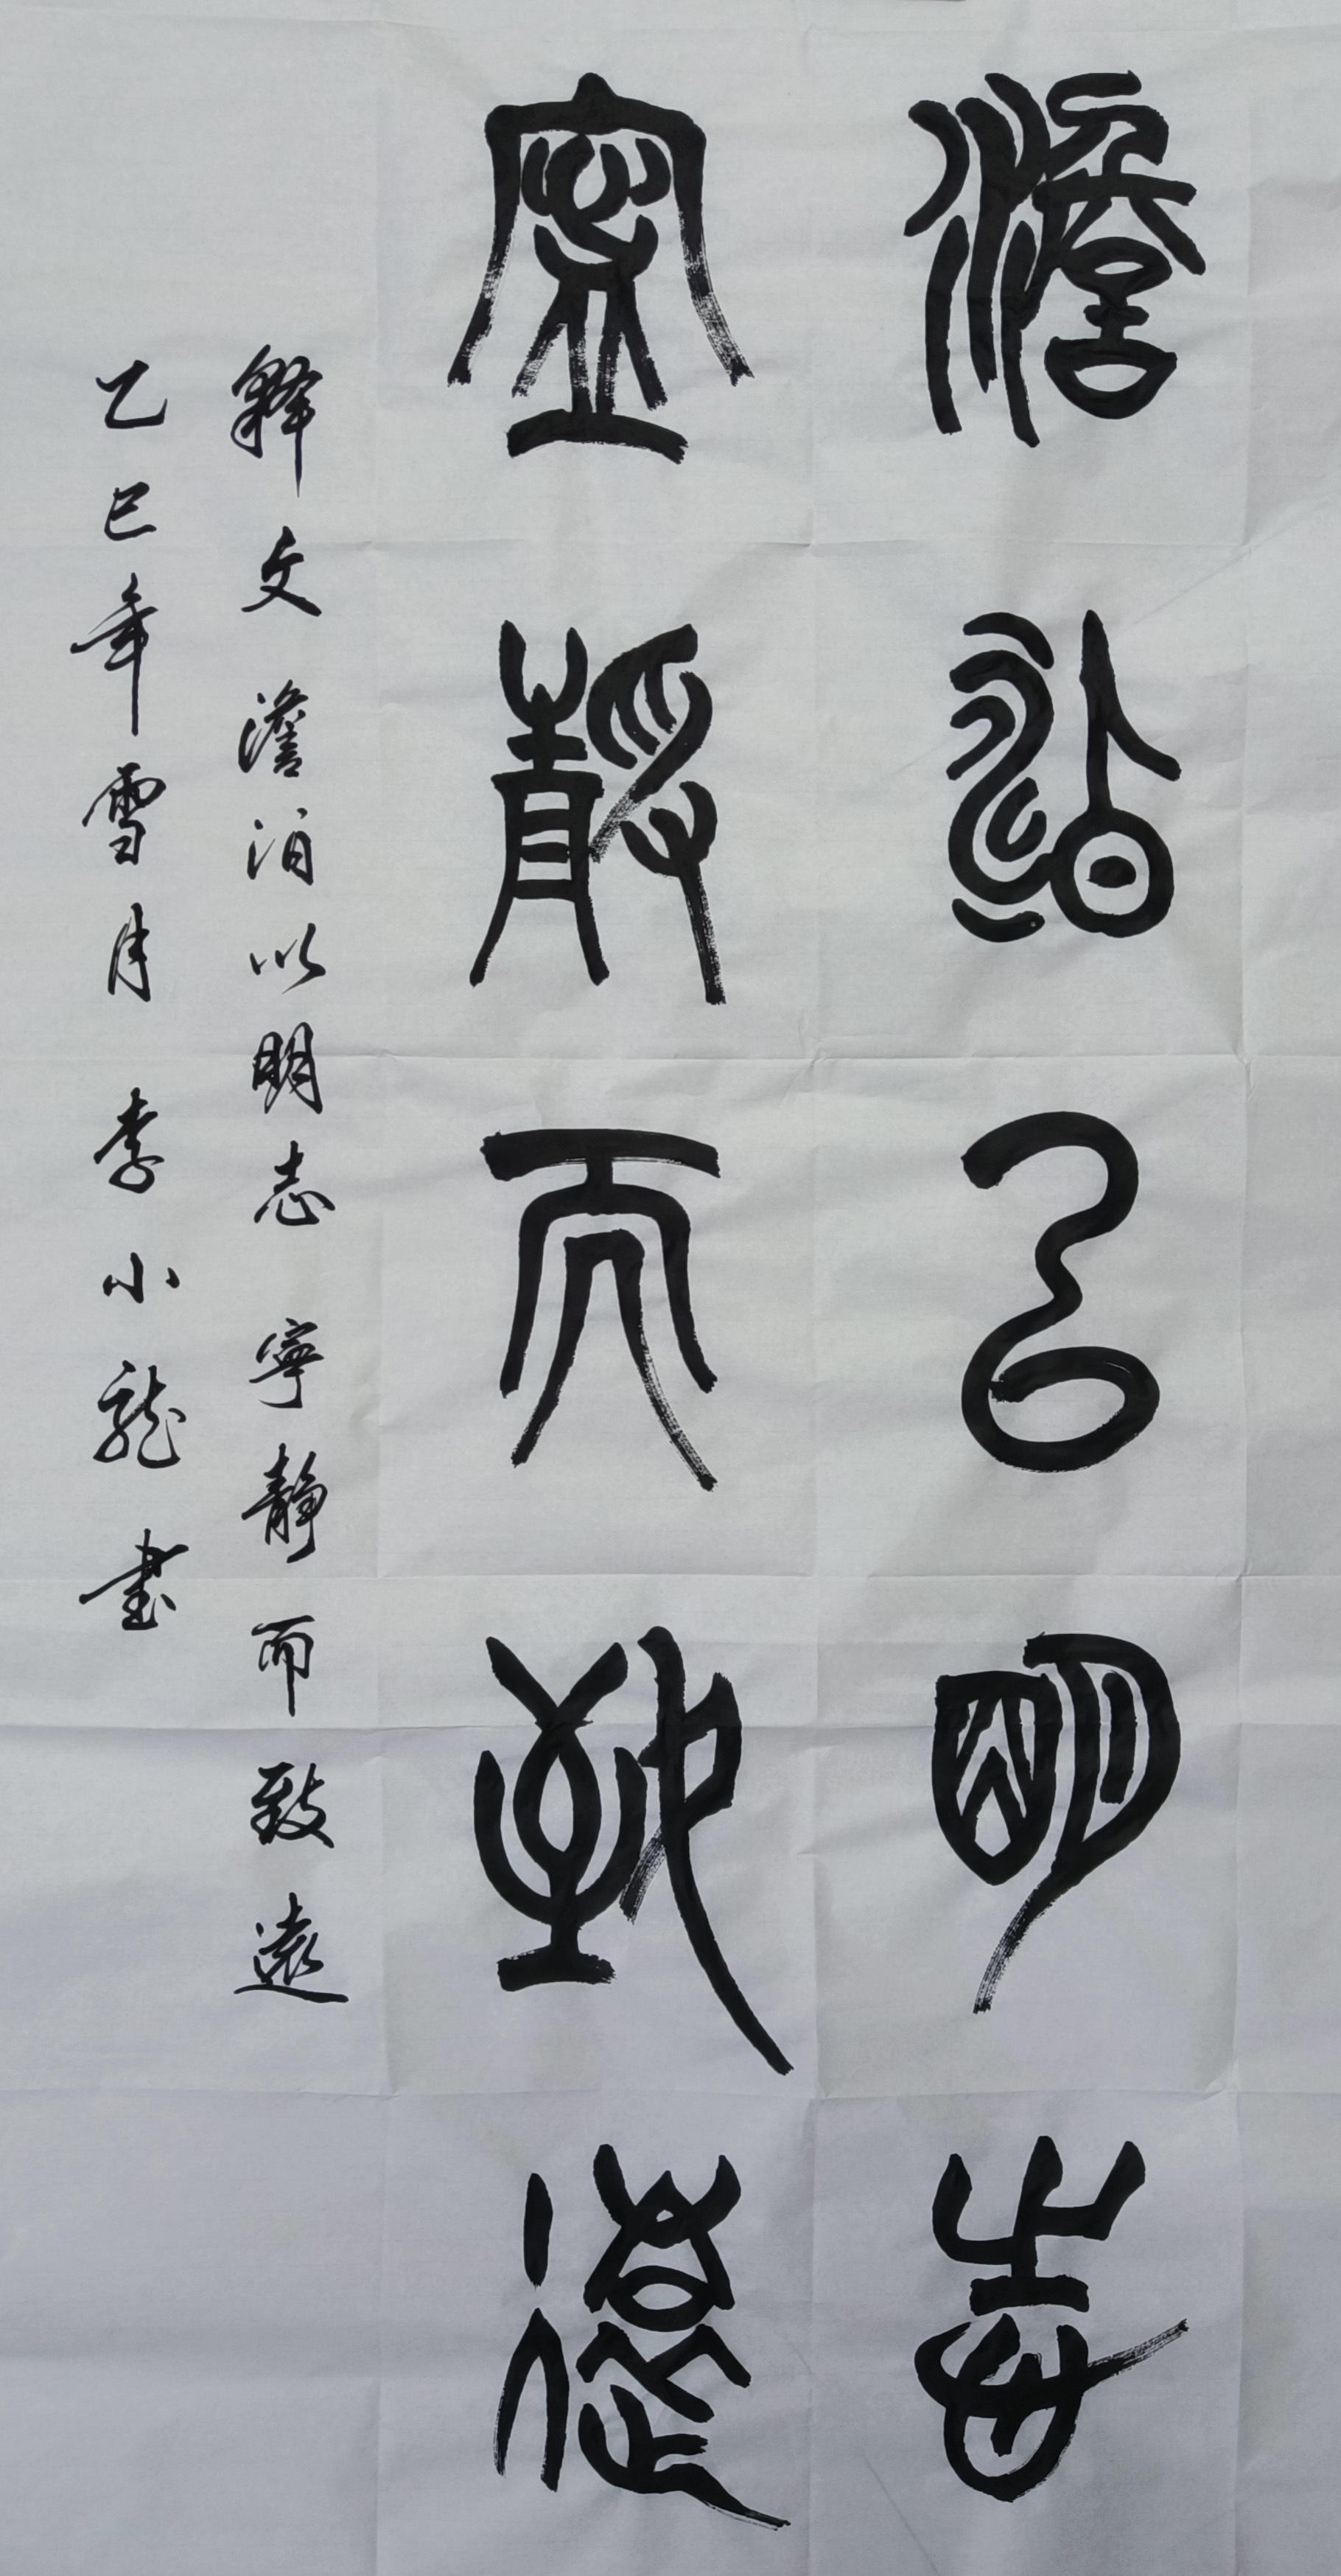 澹泊以明志
寧靜而致遠
釋文澹泊以明志寧靜而致遠
乙巳年雪月李小龍書